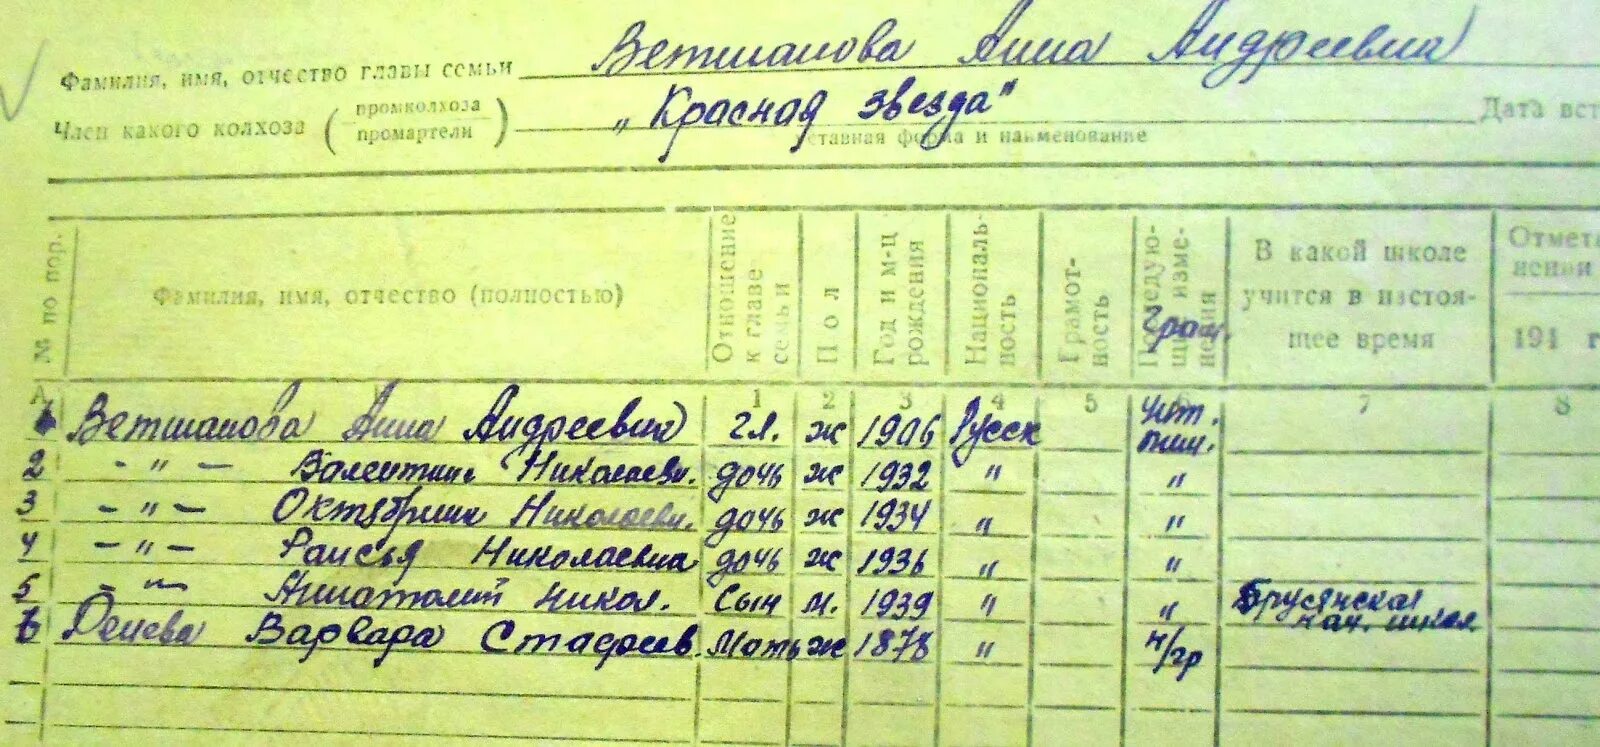 Ветшанова Анна Андреевна
Фамилия, имя, отчество главы семьи
Член какого колхоза ( промколхоза / промартели ) „Красная звезда" Дата вст
уставная форма и наименование
№ по пор. Фамилия, имя, отчество (полностью) Отношение к главе семьи Пол Год и м-ц рождения Националь-ность Грамот-ность Последую-щие изме-нения Грам. В какой школе учится в настоя-щее время Отмет нении 191 г
А 1 2 3 4 5 6 7 8
1 Ветшанова Анна Андреевна гл. ж 1906 Русск чит. пиш.
2 - „ - Валентина Николаевн. дочь ж 1932 „ „
3 - „ - Октябрина Николаевн. дочь ж 1934 „ „
4 - „ - Раисья Николаевна дочь ж 1936 „ „
5 „ - Анатолий Никол. Сын м. 1939 „ „ Брусянская нач. школа
6 Денева Варвара Стафеев. Мать ж 1878 „ н/гр